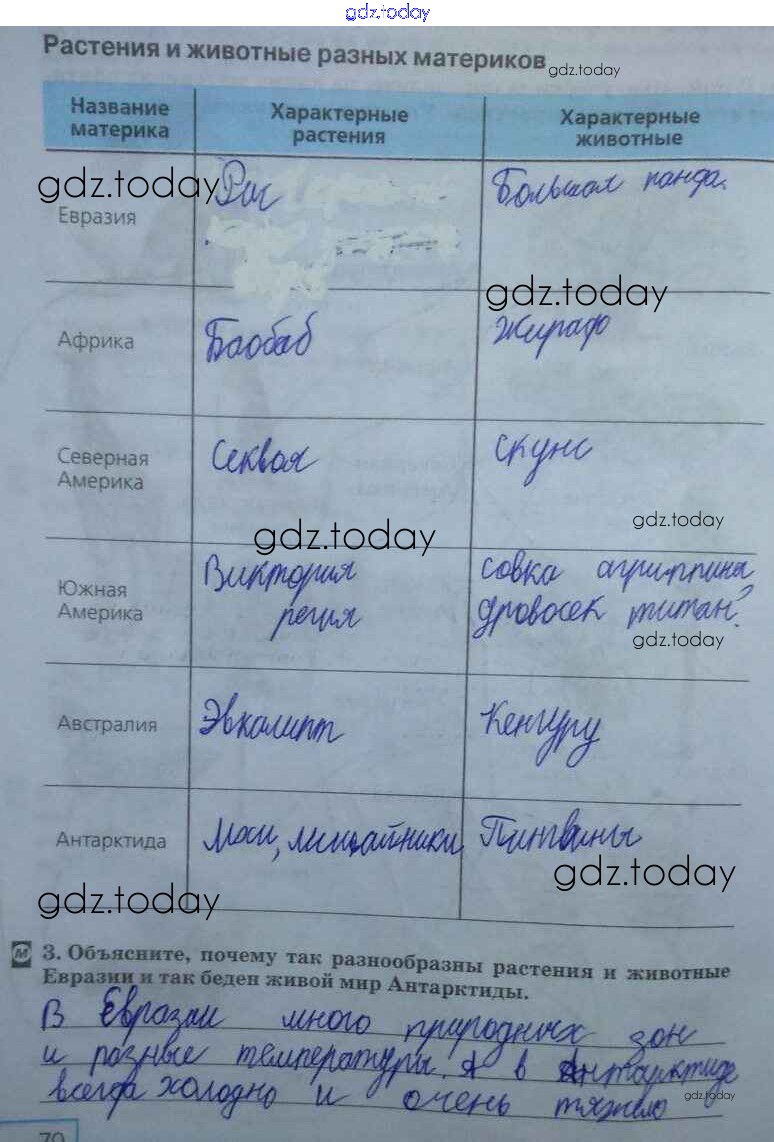 gdz.today
Растения и животные разных материков
gdz.today
Название материка
Характерные растения
Характерные животные
gdz.today
Евразия
Рис
Большая панда.
gdz.today
Африка
Баобаб
Жираф
Северная Америка
Секвоя
скунс
gdz.today
gdz.today
Южная Америка
Виктория
регия
совка агриппина,
дровосек титан.
gdz.today
Австралия
Эвкалипт
Кенгуру
Антарктида
Мхи, лишайники
Пингвины
gdz.today
gdz.today
М
3. Объясните, почему так разнообразны растения и животные
Евразии и так беден живой мир Антарктиды.
В Евразии много природных зон
и разные температуры. А в Антарктиде
всегда холодно и очень тяжело
gdz.today
70